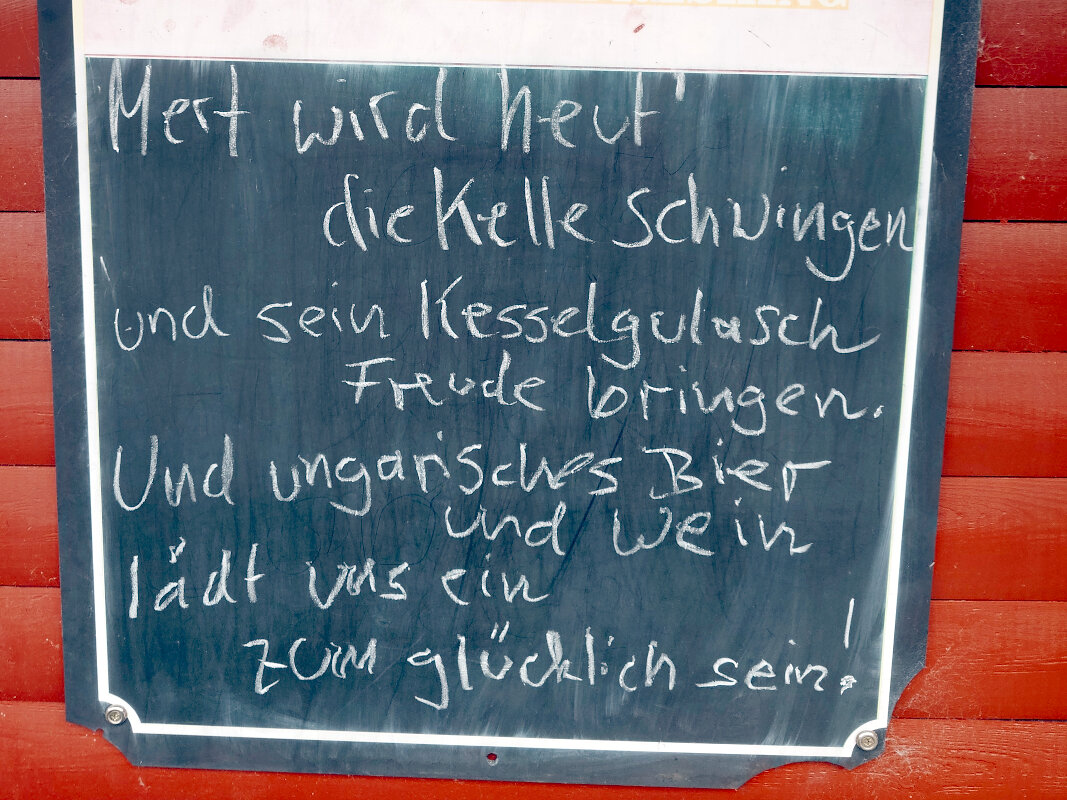 Mert wird heut'
die Kelle schwingen
und sein Kesselgulasch
Freude bringen.
Und ungarisches Bier
und Wein
lädt uns ein
zum glücklich sein!